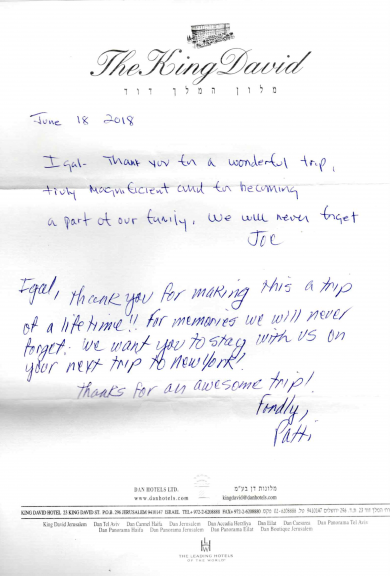 The King David
מלון המלך דוד
June 18 2018
Igal- Thank you for a wonderful trip,
truly magnificient and for becoming
a part of our family. We will never forget
Joe
Igal, thank you for making this a trip
of a lifetime!! For memories we will never
forget. We want you to stay with us on
your next trip to New York!
thanks for an awesome trip!
Fondly,
Patti
DAN HOTELS LTD. מלונות דן בע"מ
www.danhotels.com kingdavid@danhotels.com
KING DAVID HOTEL 23 KING DAVID ST. P.O.B. 296 JERUSALEM 9410147 ISRAEL TEL: 972-2-6208888 FAX: 972-2-6208880
King David Jerusalem Dan Tel Aviv Dan Carmel Haifa Dan Jerusalem Dan Accadia Herzliya Dan Eilat Dan Caesarea Dan Panorama Tel Aviv
Dan Panorama Haifa Dan Panorama Jerusalem Dan Panorama Eilat Dan Boutique Jerusalem
THE LEADING HOTELS
OF THE WORLD